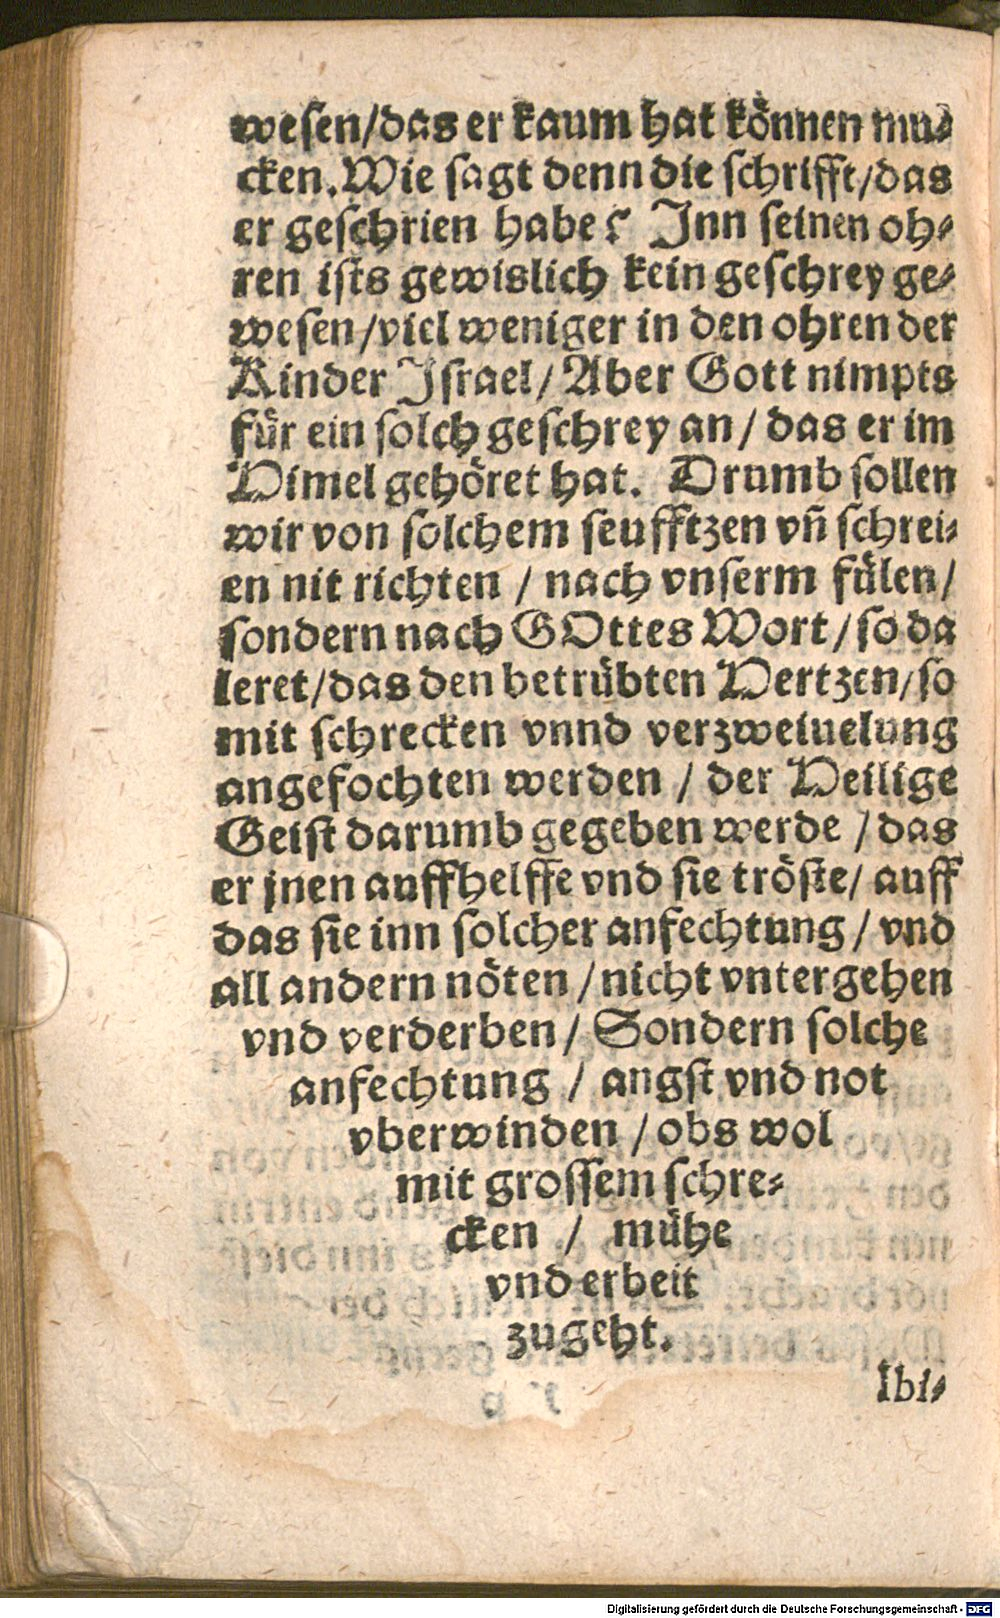 wesen/das er kaum hat können mu⸗
cken. Wie sagt denn die schrifft/das
er geschrien habe? Jnn seinen oh⸗
ren ists gewislich kein geschrey ge⸗
wesen/viel weniger in den ohren der
Kinder Jsrael/ Aber Gott nimpts
für ein solch geschrey an/ das er im
Himel gehöret hat. Drumb sollen
wir von solchem seufftzen vñ schrei⸗
en nit richten / nach vnserm fülen/
sondern nach GOttes Wort/so da
leret/das den betrübten Hertzen/so
mit schrecken vnnd verzweiuelung
angefochten werden / der Heilige
Geist darumb gegeben werde / das
er jnen auffhelffe vnd sie tröste/ auff
das sie inn solcher anfechtung / vnd
all andern nöten /nicht vntergehen
vnd verderben/ Sondern solche
anfechtung / angst vnd not
vberwinden /obs wol
mit grossem schre⸗
cken / mühe
vnd erbeit
zugeht.
Ibi⸗
Digitalisierung gefördert durch die Deutsche Forschungsgemeinschaft - DFG